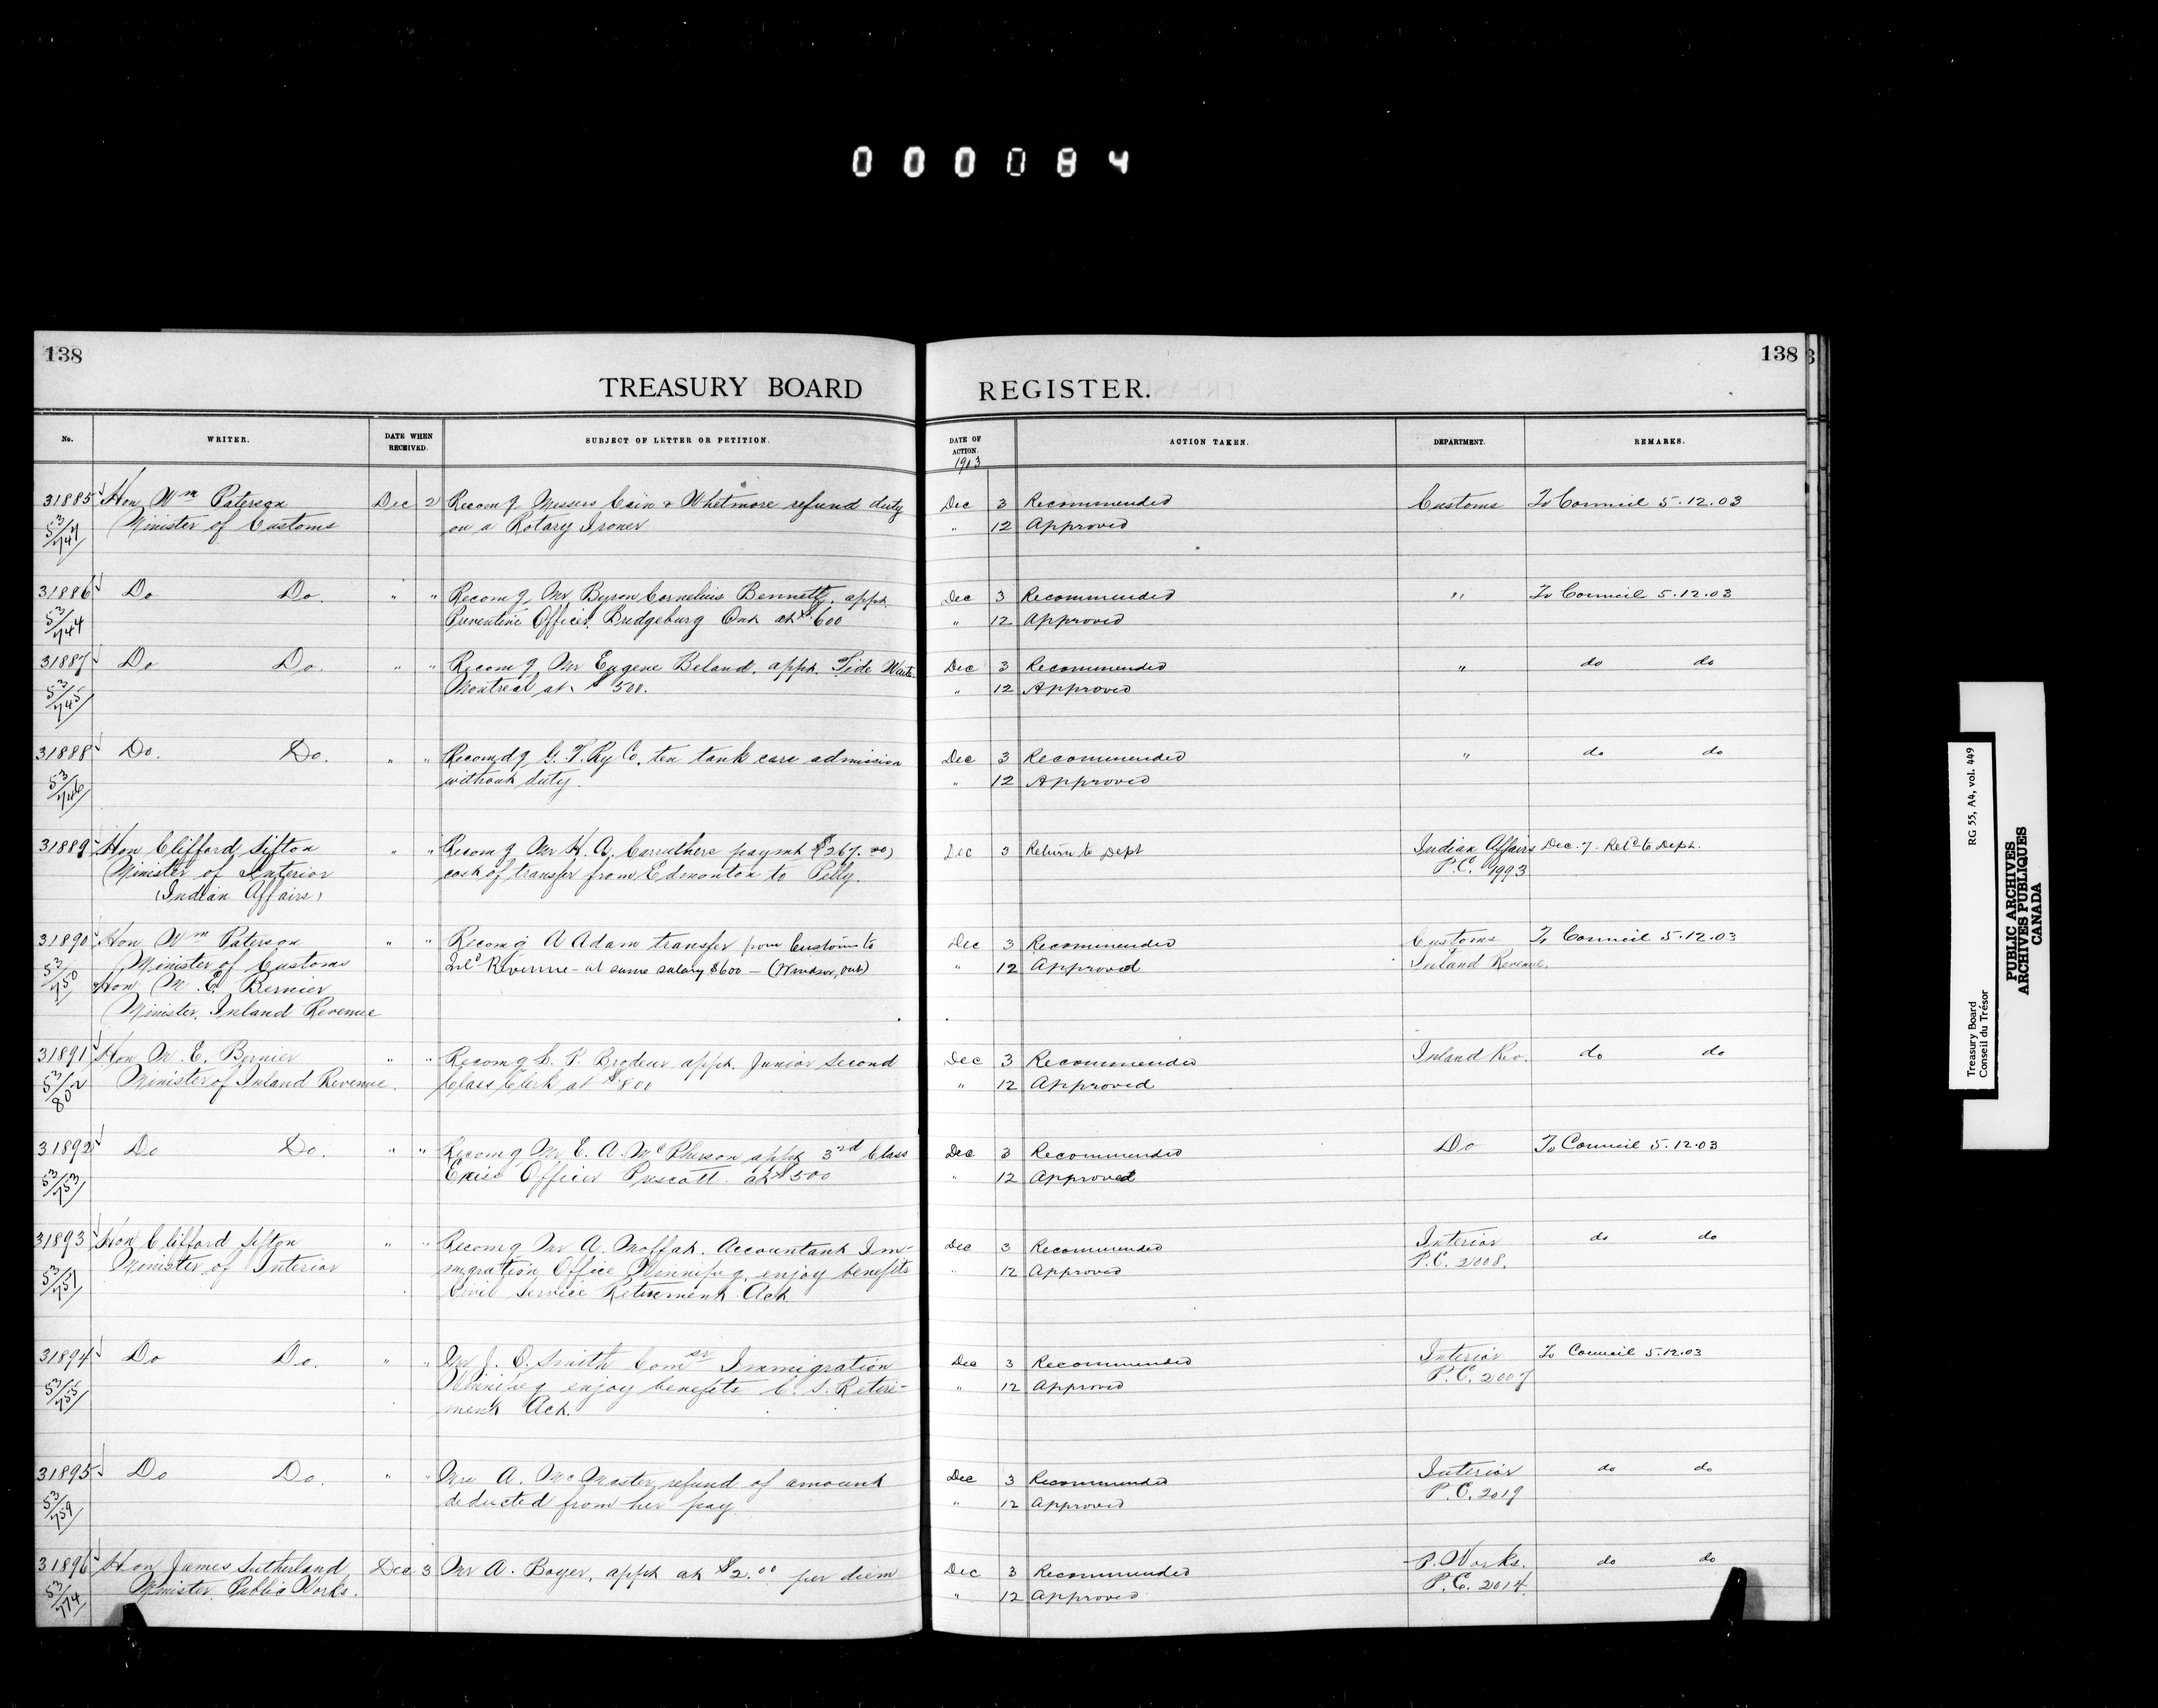 000084
138
138
TREASURY BOARD REGISTER.
No. WRITER. DATE WHEN RECEIVED. SUBJECT OF LETTER OR PETITION. DATE OF ACTION. ACTION TAKEN. DEPARTMENT. REMARKS.
1903
31885 Hon Wm Paterson Dec 2 Recomg Messrs Cain & Whetmore refund duty Dec 3 Recommended Customs To Council 5.12.03
53/747 Minister of Customs on a Rotary Ironer " 12 Approved
31886 Do Do. " " Recomg Mr Byron Cornelius Bennett, appt. Dec 3 Recommended " To Council 5.12.03
53/744 Preventive Officer, Bridgeburg Ont at $600 " 12 Approved
31887 Do Do. " " Recomg Mr Eugene Beland, appt. Tide Waiter Dec 3 Recommended " do do
53/745 Montreal at $500. " 12 Approved
31888 Do. Do. " " Recomdg G.T.Ry Co. ten tank cars admission Dec 3 Recommended " do do
53/746 without duty. " 12 Approved
31889 Hon Clifford Sifton " " Recomg Mr H. A. Carruthers paymt $267.00 Dec 3 Return to Dept Indian Affairs Dec. 7 - Retd to Dept.
Minister of Interior cost of transfer from Edmonton to Pelly. P.C. 1993
(Indian Affairs)
31890 Hon Wm Paterson " " Recomg A Adam transfer from Customs to Dec 3 Recommended Customs To Council 5.12.03
53/750 Minister of Customs Inld Revenue - at same salary $600 - (Windsor, Ont) " 12 Approved Inland Revenue.
Hon M. E. Bernier
Minister, Inland Revenue
31891 Hon M. E. Bernier " " Recomg L. P. Brodeur appt. Junior Second Dec 3 Recommended Inland Rev. do do
53/802 Minister of Inland Revenue. Class Clerk at $800 " 12 Approved
31892 Do Do. " " Recomg Mr E. A. McPherson appt 3rd Class Dec 3 Recommended Do To Council 5.12.03
53/753 Excise Officer Prescott. at $500 " 12 Approved
31893 Hon Clifford Sifton " " Recomg Mr A. Moffat. Accountant Im- Dec 3 Recommended Interior do do
53/751 Minister of Interior migration Office Winnipeg, enjoy benefits " 12 Approved P.C. 2008.
Civil Service Retirement Act
31894 Do Do. " " Mr J. O. Smith Comsr Immigration Dec 3 Recommended Interior To Council 5.12.03
53/755 Winnipeg enjoy benefits C. S. Retire- " 12 Approved P.C. 2007
ment Act.
31895 Do Do. " " Mrs A. McMaster, refund of amount Dec 3 Recommended Interior do do
53/759 deducted from her pay " 12 Approved P.C. 2019
31896 Hon James Sutherland, Dec 3 Mr A. Boyer, appt at $2.00 per diem Dec 3 Recommended P. Works. do do
53/774 Minister, Public Works. " 12 Approved P.C. 2014
RG 55, A4, vol. 449
Treasury Board
Conseil du Trésor
PUBLIC ARCHIVES
ARCHIVES PUBLIQUES
CANADA